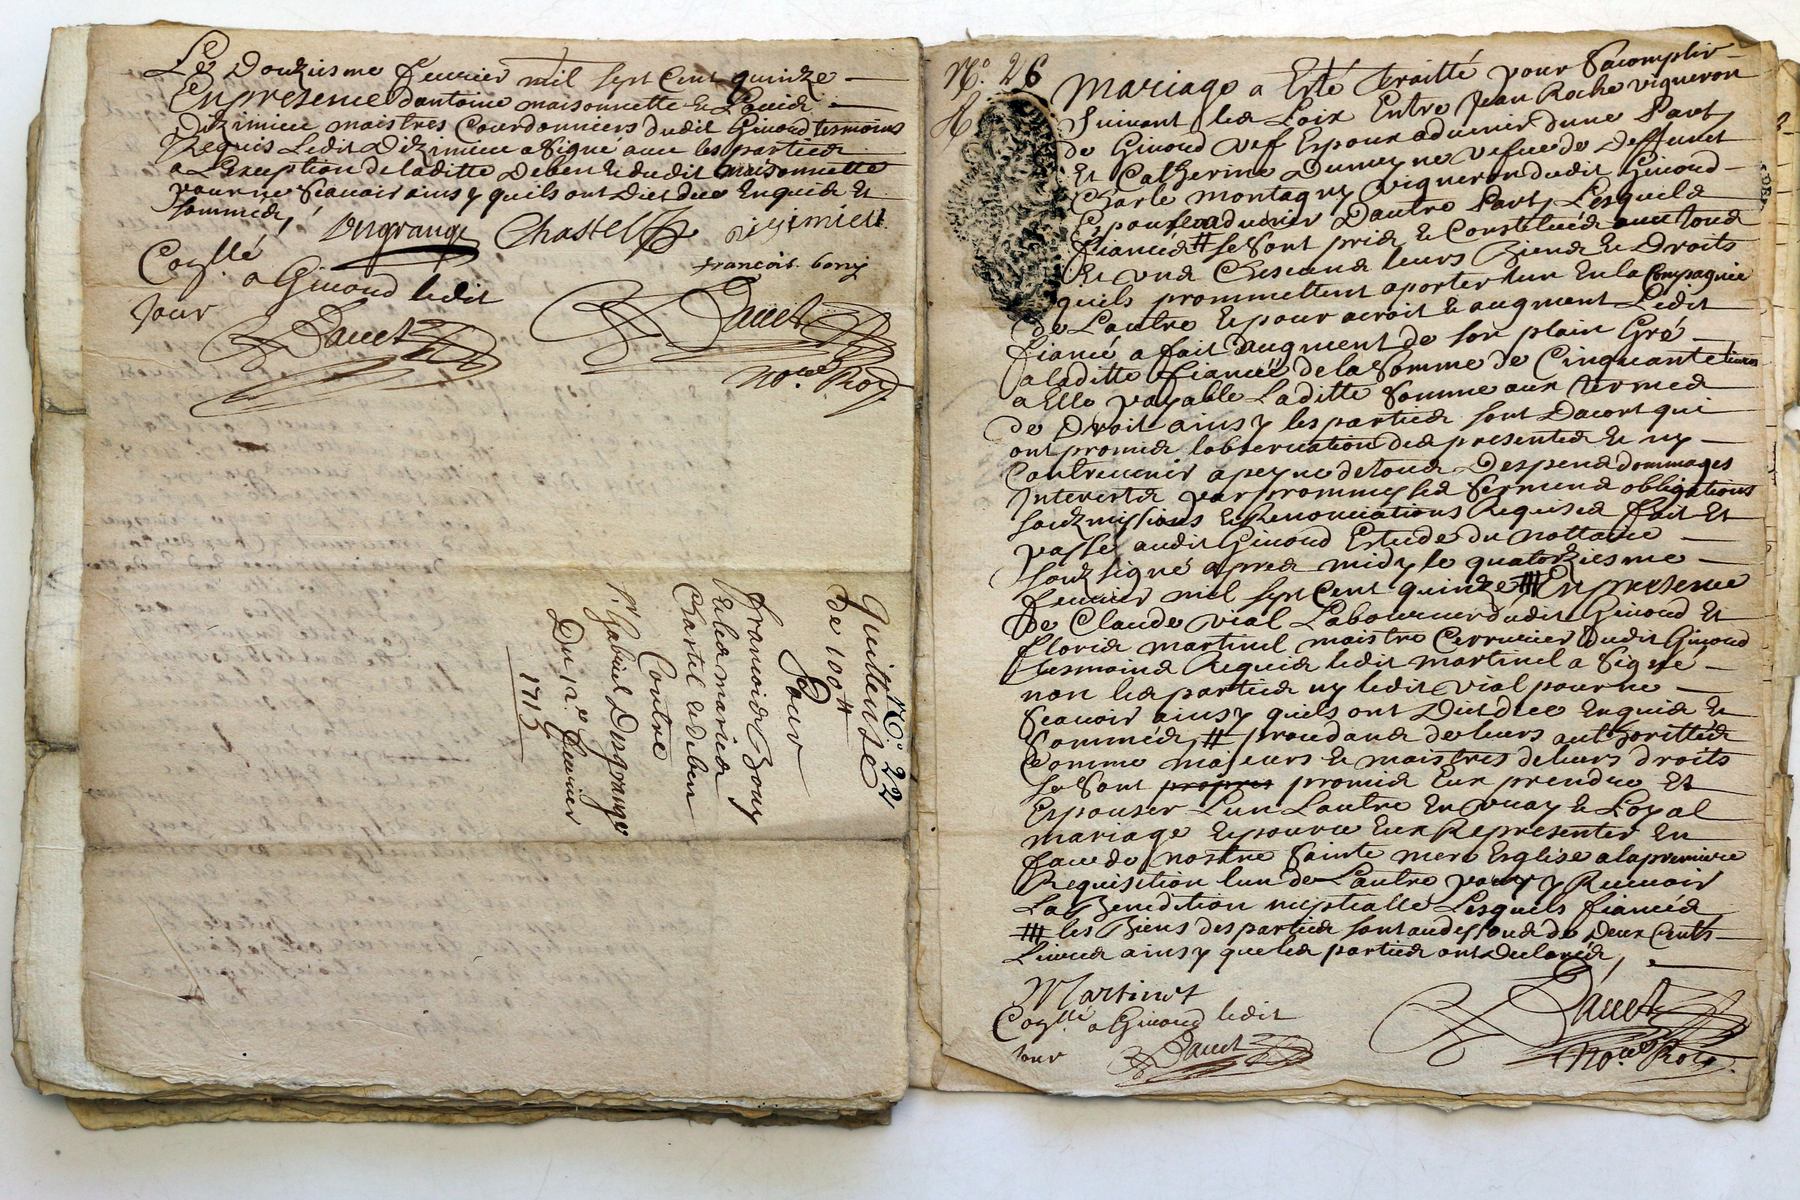 Le Douziesme feurier mil sept Cent quinze
En presence dantoine maisonnette & Louis
Dizimieu maistres Courdonniers dudit Giuord tesmoins
Requis Ledit Dizimieu a signé auec les parties
a Lexception de laditte Deben & dudit maisonnette
pour ne scauoir ainsy quils ont Dict duc Enquis Et
sommés,
Desgrange Chastel dizimieu
françois bony
Coṅllé
a Giuord ledit
Jour
Dauet
Dauet
No.re Roy.
N.o 22
Quittense
De 100 ++
Pour
francois Bony
Et les mariés
Chastel & deben
Contre
Sr. Gabriel Desgranges
Du 12.e feurier
1715
N.o 26
mariage a Esté traitté pour sacomplir
suiuant les Loix Entre Jean Roche vigneron
de Giuord vef Espoux aduenir dune Part
Et Catherine vefue de Deffunct
Charle montagny vigneron dudit Giuord
Espouse aduenir Dautre Part, Lesquels
fiancés # se sont pris & Constitués auec tous
Et uns Chescuns leurs Biens & Droits
quils prommettent aporter lun En la Compagnie
de Lautre & pour acroit & augment Ledit
fiancé a fait daugment de son plain Gré
a laditte fiancée de la somme de Cinquante liures
a Elle payable Laditte somme aux termes
de Droit ainsy les parties sont Dacort qui
ont promis lobseruation des presentes & ny
Contreuenir a peyne de tous Despens dommages
Interests par prommesses sermens obligations
soubzmissions & Renonciations Requises fait Et
passé audit Giuord Estude du nottaire
soubzsigné apres midy le quatorziesme
feurier mil sept Cent quinze # En presence
De Claude vial Laboureur dudit Giuord Et
floris martinel maistre Cerrurier dudit Giuord
tesmoins Requis ledit martinel a signe
non les parties ny ledit vial pour ne
scauoir ainsy quils ont Dict duc Enquis Et
sommés, # procedans de leurs authorittés
Comme majeurs & maistres de leurs droits
se sont propres promis Eux prendre Et
Espouser Lun Lautre En vray & Loyal
mariage & pour ce Eux Representer En
face de nostre sainte mere Esglise a la premiere
Requisition lun de Lautre pour y Receuoir
La Benedition nuptialle Lesquels fiancés
# les Biens des parties sont audessous de Deux Cents
Liures ainsy que les parties ont Declarés,
Martinet
Coṅllé a Giuord ledit
Jour
Dauet
Dauet
No.re Roy.